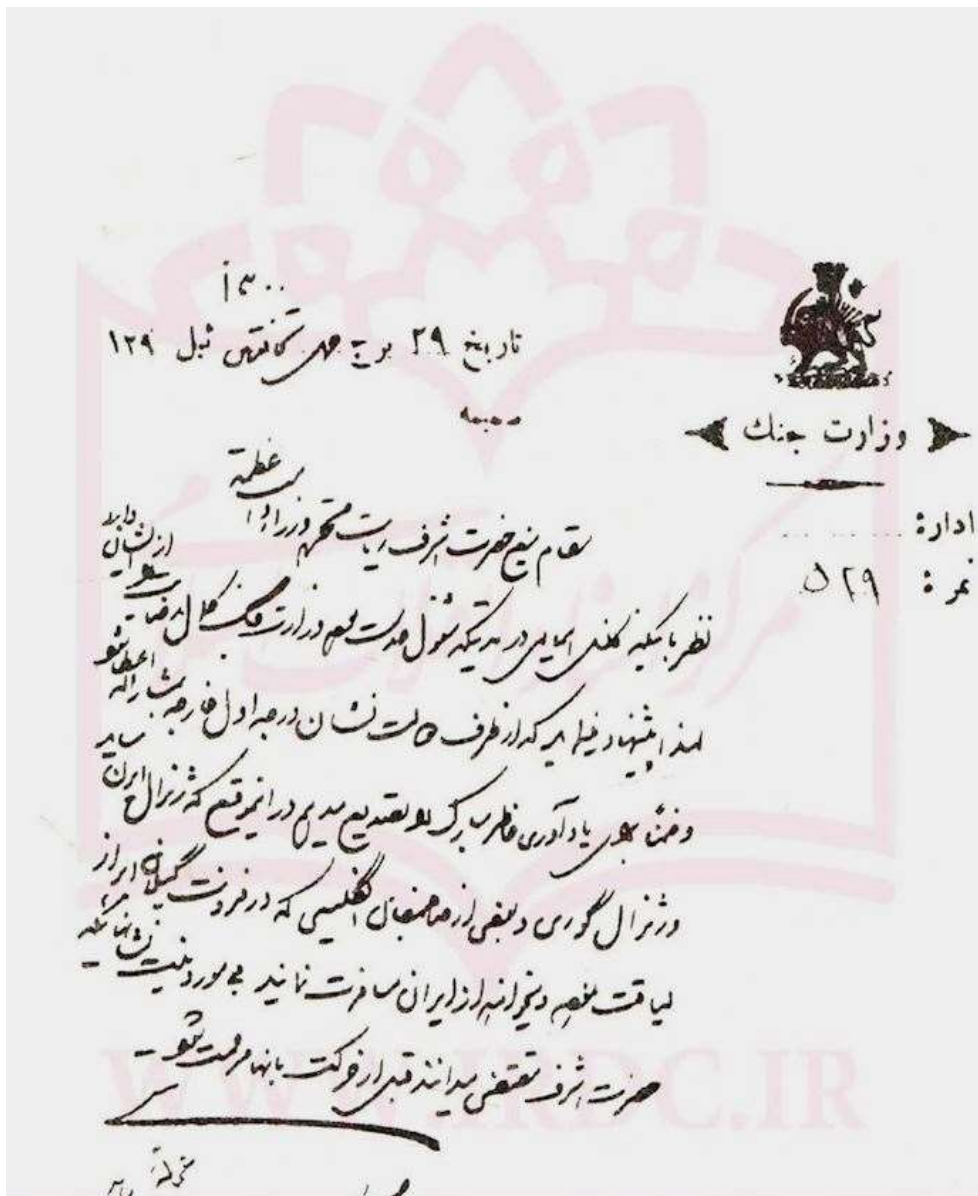 ۱۳۰۰
تاریخ ۲۹ برج حمل تخاقوی ئیل ۱۲۹
ضمیمه
وزارت جنك
اداره
نمره ۵۲۹
مقام منیع حضرت اشرف ریاست محترم وزراء دامت عظمته
نظر باینکه کلنل در مدتیکه مشغول خدمت بوده وزارت جنگ کمال رضایت را از ایشان دارد
لهذا پیشنهاد مینماید که از طرف دولت نشان درجه اول خارجه بمشارالیه اعطا شود
و ضمناً برای یادآوری خاطر مبارک تصدیع میدهم در این موقع که ژنرال
و ژنرال گوری و بعضی از صاحبمنصبان انگلیسی که در فرونت گیلان ابراز
لیاقت نموده و میخواهند از ایران مسافرت نمایند بی مورد نیست نشانهائیکه
حضرت اشرف مقتضی میدانند قبل از حرکت بآنها مرحمت شود
WWW.IRDC.IR